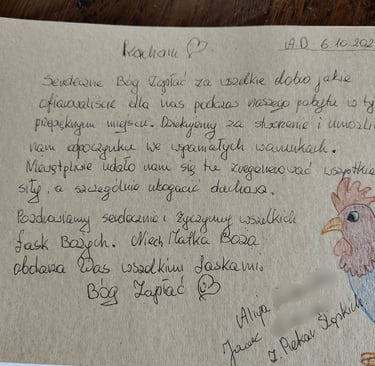 Kochani
A.D. 6.10.202
Serdeczne Bóg Zapłać za wszelkie dobro jakie
ofiarowaliście dla nas podczas naszego pobytu w ty
przepięknym miejscu. Dziękujemy za stworzenie i umożli
nam odpoczynku we wspaniałych warunkach.
Niewątpliwie udało nam się tu zregenerować wszystkie
siły, a szczególnie ubogacić duchowo.
Pozdrawiamy serdecznie i życzymy wszelkich
Łask Bożych. Niech Matka Boża
obdarza Was wszelkimi Łaskami.
Bóg Zapłać
Alicja
Jacek
z Piekar Śląskich